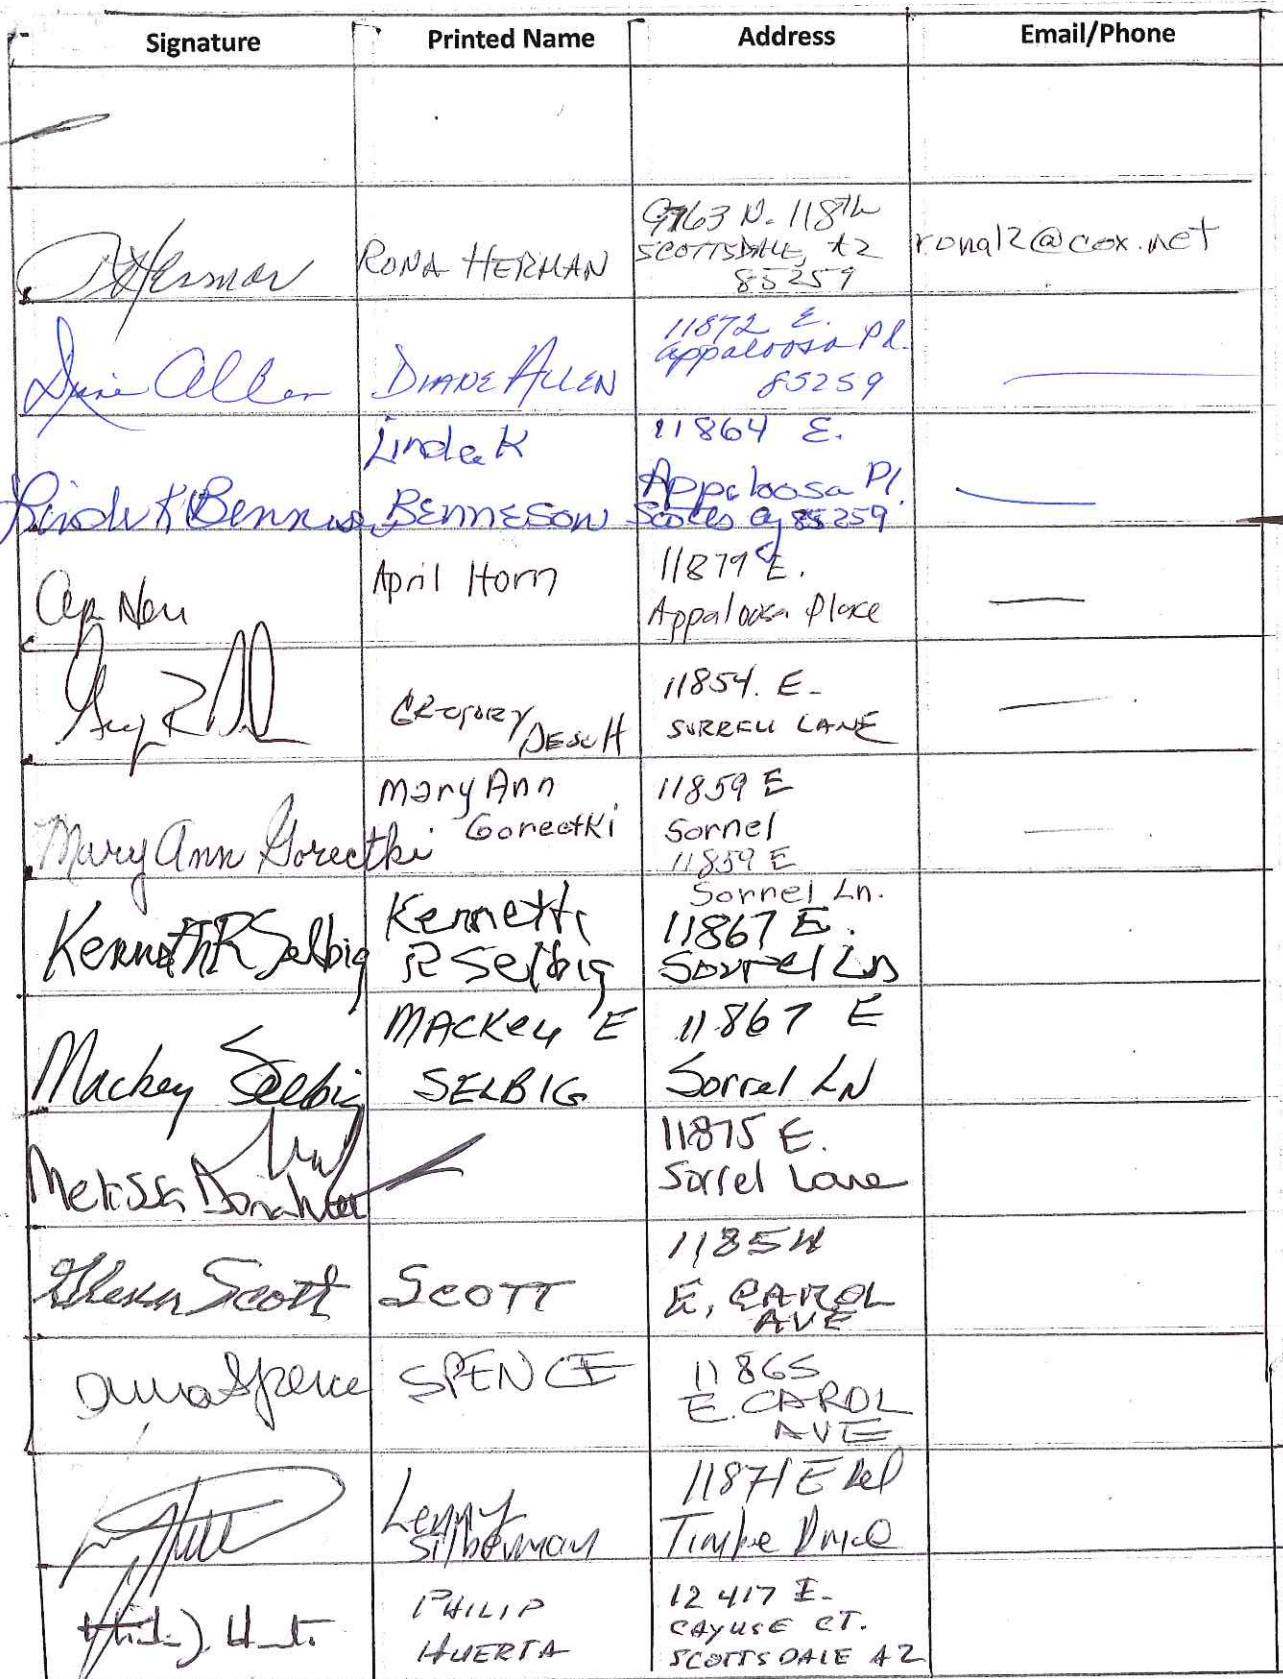 Signature Printed Name Address Email/Phone
Herman RONA HERMAN 9763 N. 118th
SCOTTSDALE, AZ
85259 ronal2@cox.net
Diane Allen DIANE ALLEN 11872 E.
Appaloosa Pl.
85259
Linda K
BENNESON 11864 E.
Appaloosa Pl.
85259
April Horn 11879 E.
Appaloosa Place
GREGORY
DESCH 11854. E.
SORRELL LANE
Mary Ann Gorectki Mary Ann
Gorectki 11859 E
Sorrel
11859 E
Sorrel Ln.
Kenneth R Selbig Kenneth
R Selbig 11867 E.
Sorrel Ln
Mackey Selbig MACKEY E
SELBIG 11867 E
Sorrel LN
Melissa Donahue 11875 E.
Sorrel Lane
Scott SCOTT 11854
E. CAROL
AVE
Spence SPENCE 11865
E. CAROL
AVE
Lenny
Silberman 11871 E Del
Timbre Drive
PHILIP
HUERTA 12417 E.
CAYUSE CT.
SCOTTSDALE AZ